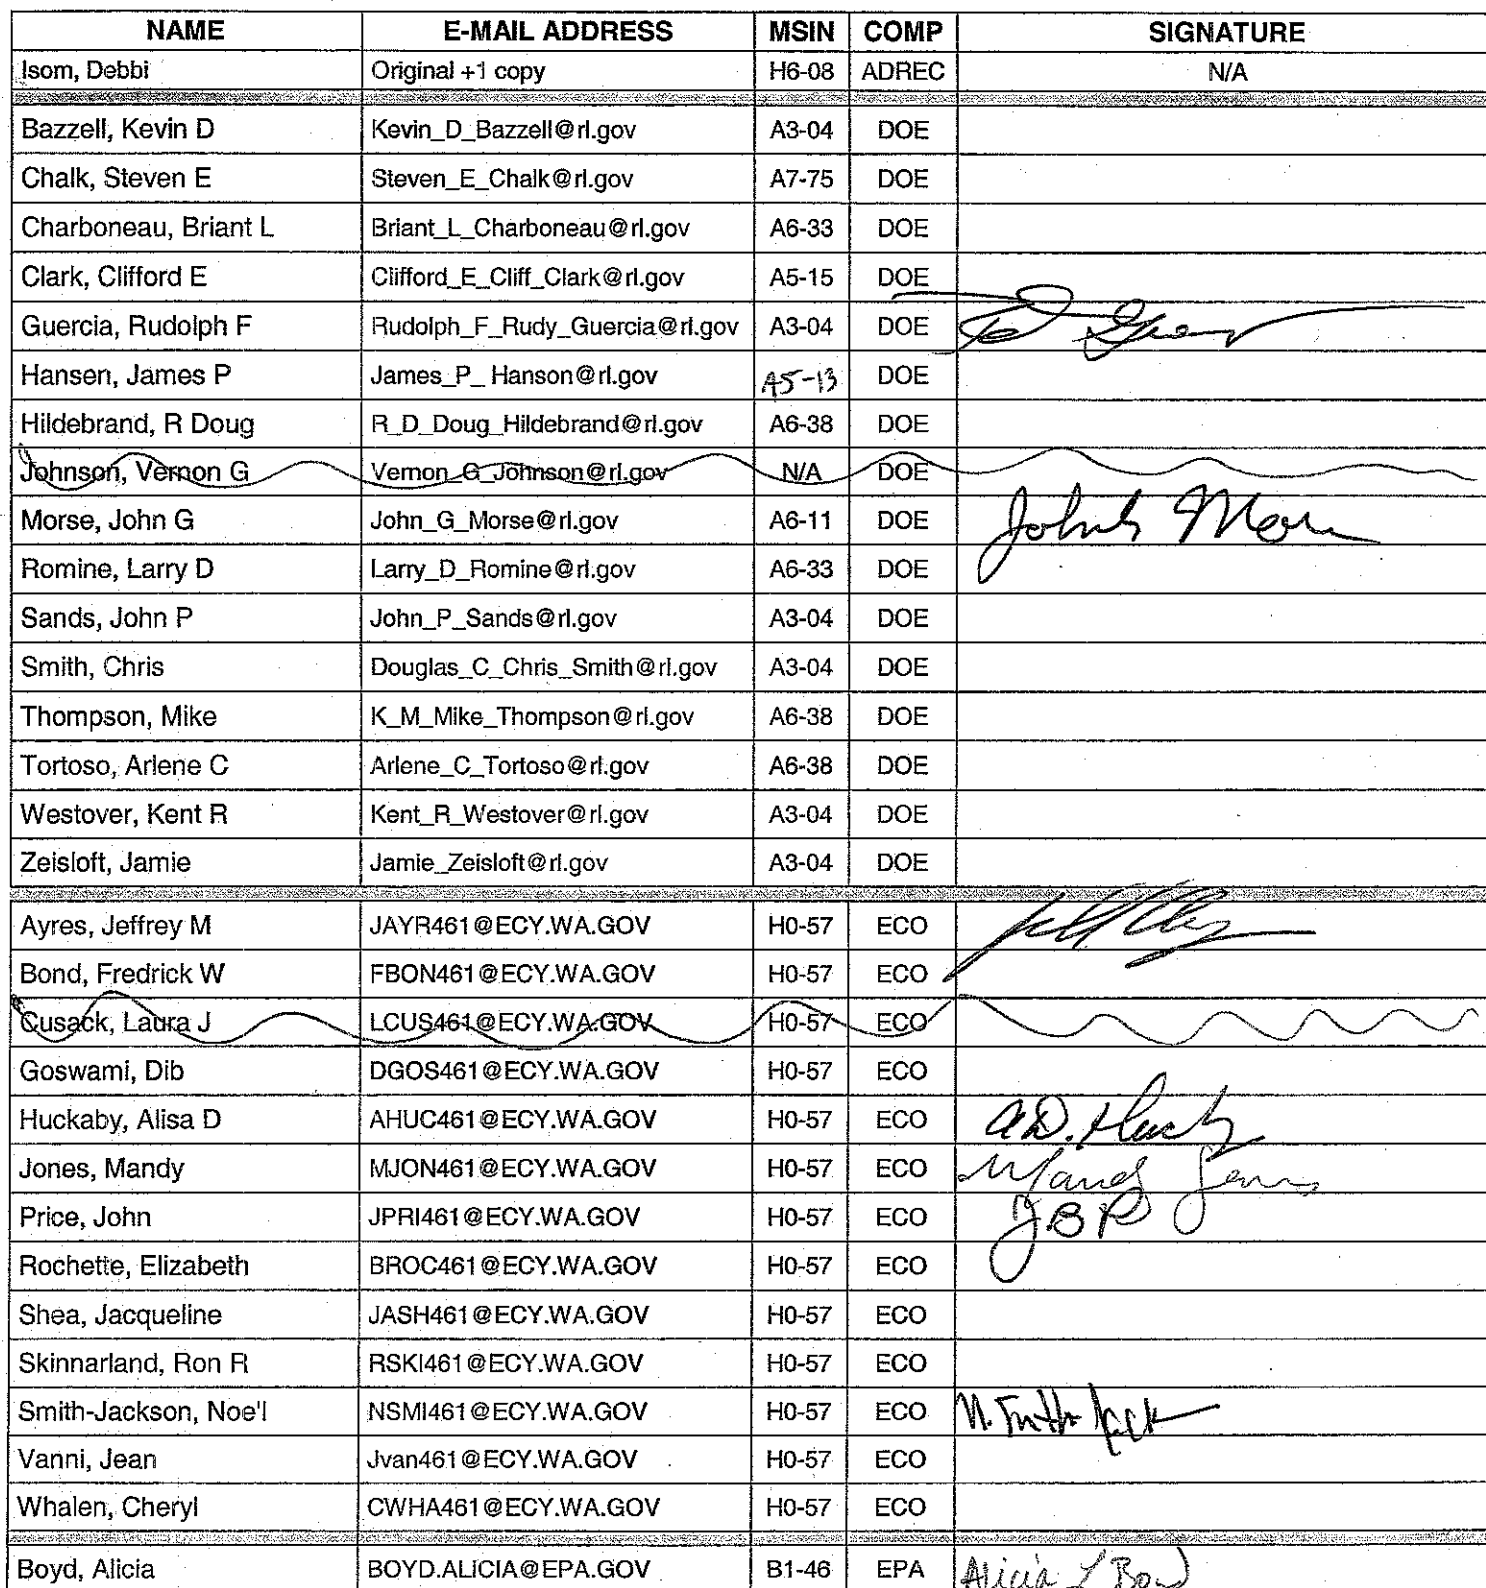 NAME E-MAIL ADDRESS MSIN COMP SIGNATURE
Isom, Debbi Original +1 copy H6-08 ADREC N/A
Bazzell, Kevin D Kevin_D_Bazzell@rl.gov A3-04 DOE
Chalk, Steven E Steven_E_Chalk@rl.gov A7-75 DOE
Charboneau, Briant L Briant_L_Charboneau@rl.gov A6-33 DOE
Clark, Clifford E Clifford_E_Cliff_Clark@rl.gov A5-15 DOE
Guercia, Rudolph F Rudolph_F_Rudy_Guercia@rl.gov A3-04 DOE
Hansen, James P James_P_ Hanson@rl.gov A5-13 DOE
Hildebrand, R Doug R_D_Doug_Hildebrand@rl.gov A6-38 DOE
Johnson, Vernon G Vernon_G_Johnson@rl.gov N/A DOE
Morse, John G John_G_Morse@rl.gov A6-11 DOE John Morse
Romine, Larry D Larry_D_Romine@rl.gov A6-33 DOE
Sands, John P John_P_Sands@rl.gov A3-04 DOE
Smith, Chris Douglas_C_Chris_Smith@rl.gov A3-04 DOE
Thompson, Mike K_M_Mike_Thompson@rl.gov A6-38 DOE
Tortoso, Arlene C Arlene_C_Tortoso@rl.gov A6-38 DOE
Westover, Kent R Kent_R_Westover@rl.gov A3-04 DOE
Zeisloft, Jamie Jamie_Zeisloft@rl.gov A3-04 DOE
Ayres, Jeffrey M JAYR461@ECY.WA.GOV H0-57 ECO
Bond, Fredrick W FBON461@ECY.WA.GOV H0-57 ECO
Cusack, Laura J LCUS461@ECY.WA.GOV H0-57 ECO
Goswami, Dib DGOS461@ECY.WA.GOV H0-57 ECO
Huckaby, Alisa D AHUC461@ECY.WA.GOV H0-57 ECO A.D.
Jones, Mandy MJON461@ECY.WA.GOV H0-57 ECO Mandy Jones
Price, John JPRI461@ECY.WA.GOV H0-57 ECO JBP
Rochette, Elizabeth BROC461@ECY.WA.GOV H0-57 ECO
Shea, Jacqueline JASH461@ECY.WA.GOV H0-57 ECO
Skinnarland, Ron R RSKI461@ECY.WA.GOV H0-57 ECO
Smith-Jackson, Noe'l NSMI461@ECY.WA.GOV H0-57 ECO N. Smith-Jack
Vanni, Jean Jvan461@ECY.WA.GOV H0-57 ECO
Whalen, Cheryl CWHA461@ECY.WA.GOV H0-57 ECO
Boyd, Alicia BOYD.ALICIA@EPA.GOV B1-46 EPA Alicia L Boyd